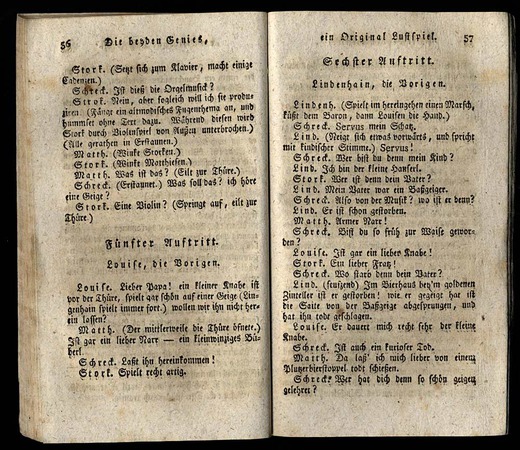 56 Die beyden Genies,
Stork. (Setzt sich zum Klavier, macht einige
Cadenzen.)
Schreck. Ist dieß die Orgelmusick?
Stork. Nein, aber sogleich will ich sie produ-
ziren. (Fängt ein altmodisches Fugenthema an, und
hummset ohne Tert dazu. Während diesen wird
Stork durch Violinspiel von Außen unterbrochen.)
(Alle gerathen in Erstaunen.)
Matth. (Winkt Storken.)
Stork. (Winkt Matthiesen.)
Matth. Was ist das? (Eilt zur Thüre.)
Schreck. (Erstaunet.) Was soll das? ich höre
eine Geige?
Stork. Eine Violin? (Springt auf, eilt zur
Thüre.)
Fünfter Auftritt.
Louise, die Vorigen.
Louise. Lieber Papa! ein kleiner Knabe ist
vor der Thüre, spielt gar schön auf einer Geige (Lin-
genhain spielt immer fort.) wollen wir ihn nicht her-
ein lassen?
Matth. (Der mittlerweile die Thüre öfnete.)
Ist gar ein lieber Narr — ein kleinwinziges Bü-
berl.
Schreck. Laßt ihn hereinkommen!
Stork. Spielt recht artig.
ein Original Lustspiel. 57
Sechster Auftritt.
Lindenhain, die Vorigen.
Lindenh. (Spielt im hereingehen einen Marsch,
küßt dem Baron, dann Louisen die Hand.)
Schreck. Servus mein Schatz.
Lind. (Neigt sich etwas vorwärts, und spricht
mit kindischer Stimme.) Servus!
Schreck. Wer bist du denn mein Kind?
Lind. Ich bin der kleine Hanserl.
Stork. Wer ist denn dein Vater?
Lind. Mein Vater war ein Baßgeiger.
Schreck. Also von der Musik? wo ist er denn?
Lind. Er ist schon gestorben.
Matth. Armer Narr!
Schreck. Bist du so früh zur Waise gewor-
den?
Louise. Ist gar ein lieber Knabe!
Stork. Ein lieber Fratz!
Schreck. Wo starb denn dein Vater?
Lind. (seufzend) Im Bierhaus bey'm goldenen
Zinteller ist er gestorben! wie er gegeigt hat ist
die Saite von der Baßgeige abgesprungen, und
hat ihn todt geschlagen.
Louise. Er dauert mich recht sehr der kleine
Knabe.
Schreck. Ist auch ein kurioser Tod.
Matth. Da laß' ich mich lieber von einem
Plutzerbierstoppel todt schießen.
Schreck. Wer hat dich denn so schön geigen
gelehret?